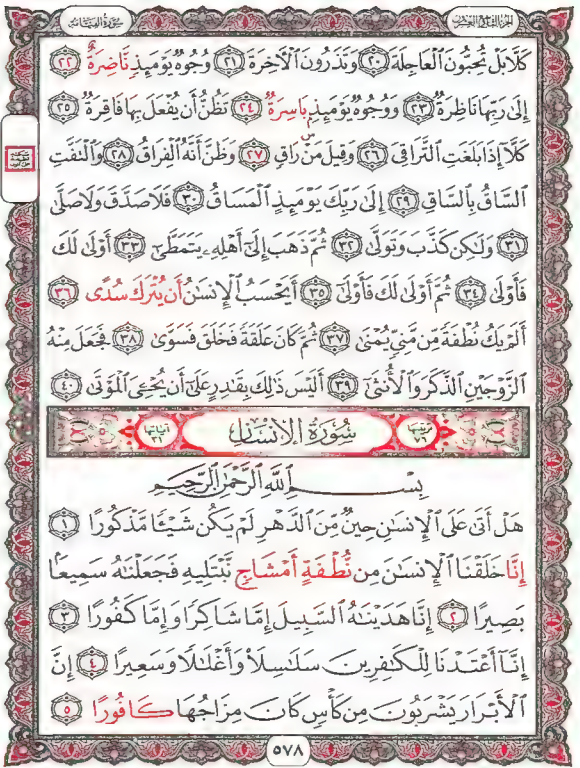 الجزء التاسع والعشرون
سورة القيامة
كَلَّا بَلْ تُحِبُّونَ ٱلْعَاجِلَةَ ٢٠ وَتَذَرُونَ ٱلْآخِرَةَ ٢١ وُجُوهٌ يَوْمَئِذٍ نَّاضِرَةٌ ٢٢
إِلَىٰ رَبِّهَا نَاظِرَةٌ ٢٣ وَوُجُوهٌ يَوْمَئِذٍ بَاسِرَةٌ ٢٤ تَظُنُّ أَن يُفْعَلَ بِهَا فَاقِرَةٌ ٢٥
كَلَّا إِذَا بَلَغَتِ ٱلتَّرَاقِيَ ٢٦ وَقِيلَ مَنْ ۜ رَاقٍ ٢٧ وَظَنَّ أَنَّهُ ٱلْفِرَاقُ ٢٨ وَٱلْتَفَّتِ
ٱلسَّاقُ بِٱلسَّاقِ ٢٩ إِلَىٰ رَبِّكَ يَوْمَئِذٍ ٱلْمَسَاقُ ٣٠ فَلَا صَدَّقَ وَلَا صَلَّىٰ
٣١ وَلَٰكِن كَذَّبَ وَتَوَلَّىٰ ٣٢ ثُمَّ ذَهَبَ إِلَىٰٓ أَهْلِهِۦ يَتَمَطَّىٰٓ ٣٣ أَوْلَىٰ لَكَ
فَأَوْلَىٰ ٣٤ ثُمَّ أَوْلَىٰ لَكَ فَأَوْلَىٰٓ ٣٥ أَيَحْسَبُ ٱلْإِنسَٰنُ أَن يُتْرَكَ سُدًى ٣٦
أَلَمْ يَكُ نُطْفَةً مِّن مَّنِىٍّ يُمْنَىٰ ٣٧ ثُمَّ كَانَ عَلَقَةً فَخَلَقَ فَسَوَّىٰ ٣٨ فَجَعَلَ مِنْهُ
ٱلزَّوْجَيْنِ ٱلذَّكَرَ وَٱلْأُنثَىٰٓ ٣٩ أَلَيْسَ ذَٰلِكَ بِقَٰدِرٍ عَلَىٰٓ أَن يُحْـِۧىَ ٱلْمَوْتَىٰ ٤٠
ترتيبها ٧٦ سُورَةُ الإِنسَانِ آياتها ٣١
بِسْمِ ٱللَّهِ ٱلرَّحْمَٰنِ ٱلرَّحِيمِ
هَلْ أَتَىٰ عَلَى ٱلْإِنسَٰنِ حِينٌ مِّنَ ٱلدَّهْرِ لَمْ يَكُن شَيْـًٔا مَّذْكُورًا ١
إِنَّا خَلَقْنَا ٱلْإِنسَٰنَ مِن نُّطْفَةٍ أَمْشَاجٍ نَّبْتَلِيهِ فَجَعَلْنَٰهُ سَمِيعًۢا
بَصِيرًا ٢ إِنَّا هَدَيْنَٰهُ ٱلسَّبِيلَ إِمَّا شَاكِرًا وَإِمَّا كَفُورًا ٣
إِنَّآ أَعْتَدْنَا لِلْكَٰفِرِينَ سَلَٰسِلَا۟ وَأَغْلَٰلًا وَسَعِيرًا ٤ إِنَّ
ٱلْأَبْرَارَ يَشْرَبُونَ مِن كَأْسٍ كَانَ مِزَاجُهَا كَافُورًا ٥
٥٧٨